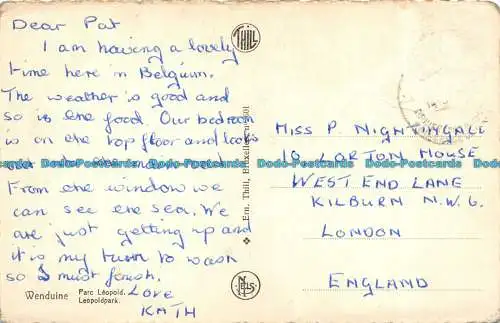 Dear Pat
I am having a lovely
time here in Belgium.
The weather is good and
so is the food. Our bedroom
is on the top floor and looks
From the window we
can see the sea. We
are just getting up and
it is my turn to wash
so I must finish.
LOVE
KATH
Wenduine
Parc Léopold.
Leopoldpark.
THILL
Ern. Thill, Bruxelles
NELS
MISS P NIGHTINGALE
10 HOUSE
WEST END LANE
KILBURN N.W.6.
LONDON
ENGLAND
Dodo-Postcards-com